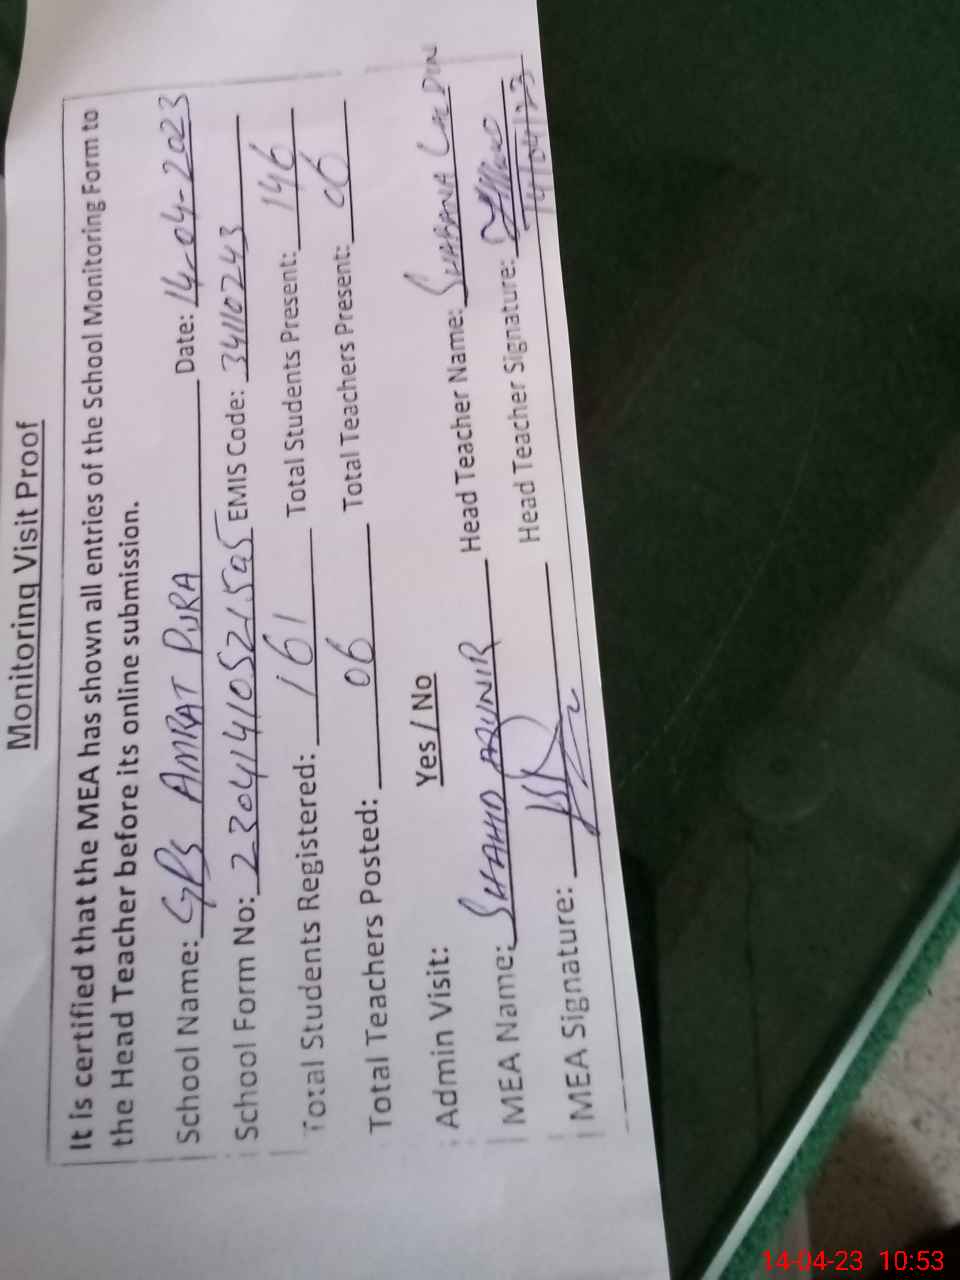 Monitoring Visit Proof
It is certified that the MEA has shown all entries of the School Monitoring Form to
the Head Teacher before its online submission.
School Name: GPS AMRAT PURA Date: 14-04-2023
School Form No: 23041410521505 EMIS Code: 34110243
Total Students Registered: 161 Total Students Present: 146
Total Teachers Posted: 06 Total Teachers Present: 06
Admin Visit: Yes / No
MEA Name: SHAHID MUNIR Head Teacher Name: SHABANA
MEA Signature: Head Teacher Signature:
14/04/23
14-04-23 10:53